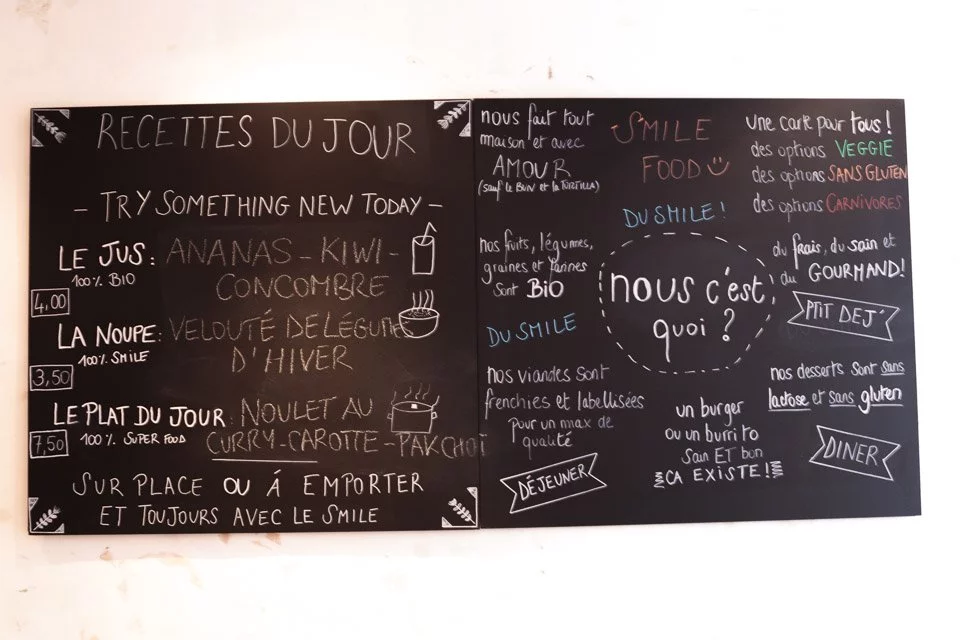 RECETTES DU JOUR
- TRY SOMETHING NEW TODAY -
LE JUS : ANANAS - KIWI -
100% BIO
CONCOMBRE
4,00
LA NOUPE : VELOUTÉ DE LÉGUMES
100% SMILE
D'HIVER
3,50
LE PLAT DU JOUR : NOULET AU
7,50
100% SUPER FOOD
CURRY-CAROTTE-PAKCHOÏ
SUR PLACE OU À EMPORTER
ET TOUJOURS AVEC LE SMILE
nous fait tout
maison et avec
AMOUR
(sauf le BUN et la TORTILLA)
SMILE
FOOD
DU SMILE !
une carte pour tous !
des options VEGGIE
des options SANS GLUTEN
des options CARNIVORES
nos fruits, légumes,
graines et farines
sont BIO
DU SMILE
nous c'est
quoi ?
du frais, du sain et
du GOURMAND!
PTIT DEJ'
nos viandes sont
frenchies et labellisées
pour un max de
qualité
DÉJEUNER
un burger
ou un burrito
sain ET bon
ÇA EXISTE !
nos desserts sont sans
lactose et sans gluten
DINER